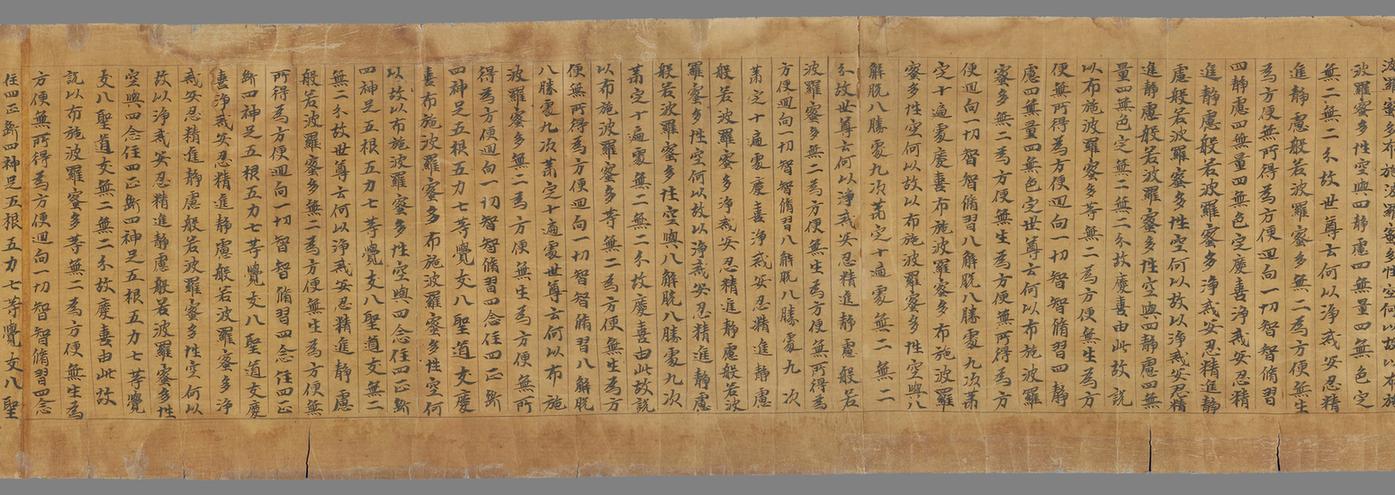 波羅蜜多性空與四靜慮四無量四無色定
無二無二分故世尊云何以淨戒安忍精
進靜慮般若波羅蜜多無二為方便無生
為方便無所得為方便迴向一切智智脩習
四靜慮四無量四無色定慶喜淨戒安忍精
進靜慮般若波羅蜜多淨戒安忍精進靜
慮般若波羅蜜多性空何以故以淨戒安忍精
進靜慮般若波羅蜜多性空與四靜慮四無
量四無色定無二無二分故慶喜由此故說
以布施波羅蜜多等無二為方便無生為方
便無所得為方便迴向一切智智脩習四靜
慮四無量四無色定世尊云何以布施波羅
蜜多無二為方便無生為方便無所得為方
便迴向一切智智脩習八解脫八勝處九次第
定十遍處慶喜布施波羅蜜多布施波羅
蜜多性空何以故以布施波羅蜜多性空與八
解脫八勝處九次第定十遍處無二無二
分故世尊云何以淨戒安忍精進靜慮般若
波羅蜜多無二為方便無生為方便無所得為
方便迴向一切智智脩習八解脫八勝處九次
第定十遍處慶喜淨戒安忍精進靜慮
般若波羅蜜多淨戒安忍精進靜慮般若波
羅蜜多性空何以故以淨戒安忍精進靜慮
般若波羅蜜多性空與八解脫八勝處九次
第定十遍處無二無二分故慶喜由此故說
以布施波羅蜜多等無二為方便無生為方
便無所得為方便迴向一切智智脩習八解脫
八勝處九次第定十遍處世尊云何以布施
波羅蜜多無二為方便無生為方便無所
得為方便迴向一切智智脩習四念住四正斷
四神足五根五力七等覺支八聖道支慶
喜布施波羅蜜多布施波羅蜜多性空何
以故以布施波羅蜜多性空與四念住四正斷
四神足五根五力七等覺支八聖道支無二
無二分故世尊云何以淨戒安忍精進靜慮
般若波羅蜜多無二為方便無生為方便無
所得為方便迴向一切智智脩習四念住四正
斷四神足五根五力七等覺支八聖道支慶
喜淨戒安忍精進靜慮般若波羅蜜多淨
戒安忍精進靜慮般若波羅蜜多性空何以
故以淨戒安忍精進靜慮般若波羅蜜多性
空與四念住四正斷四神足五根五力七等覺
支八聖道支無二無二分故慶喜由此故
說以布施波羅蜜多等無二為方便無生為
方便無所得為方便迴向一切智智脩習四念
住四正斷四神足五根五力七等覺支八聖